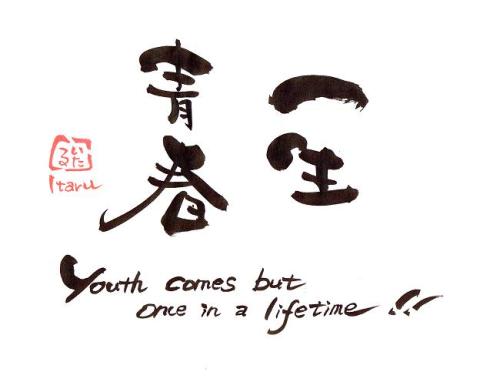 一生
青春
いたる
Itaru
Youth comes but
once in a lifetime !!